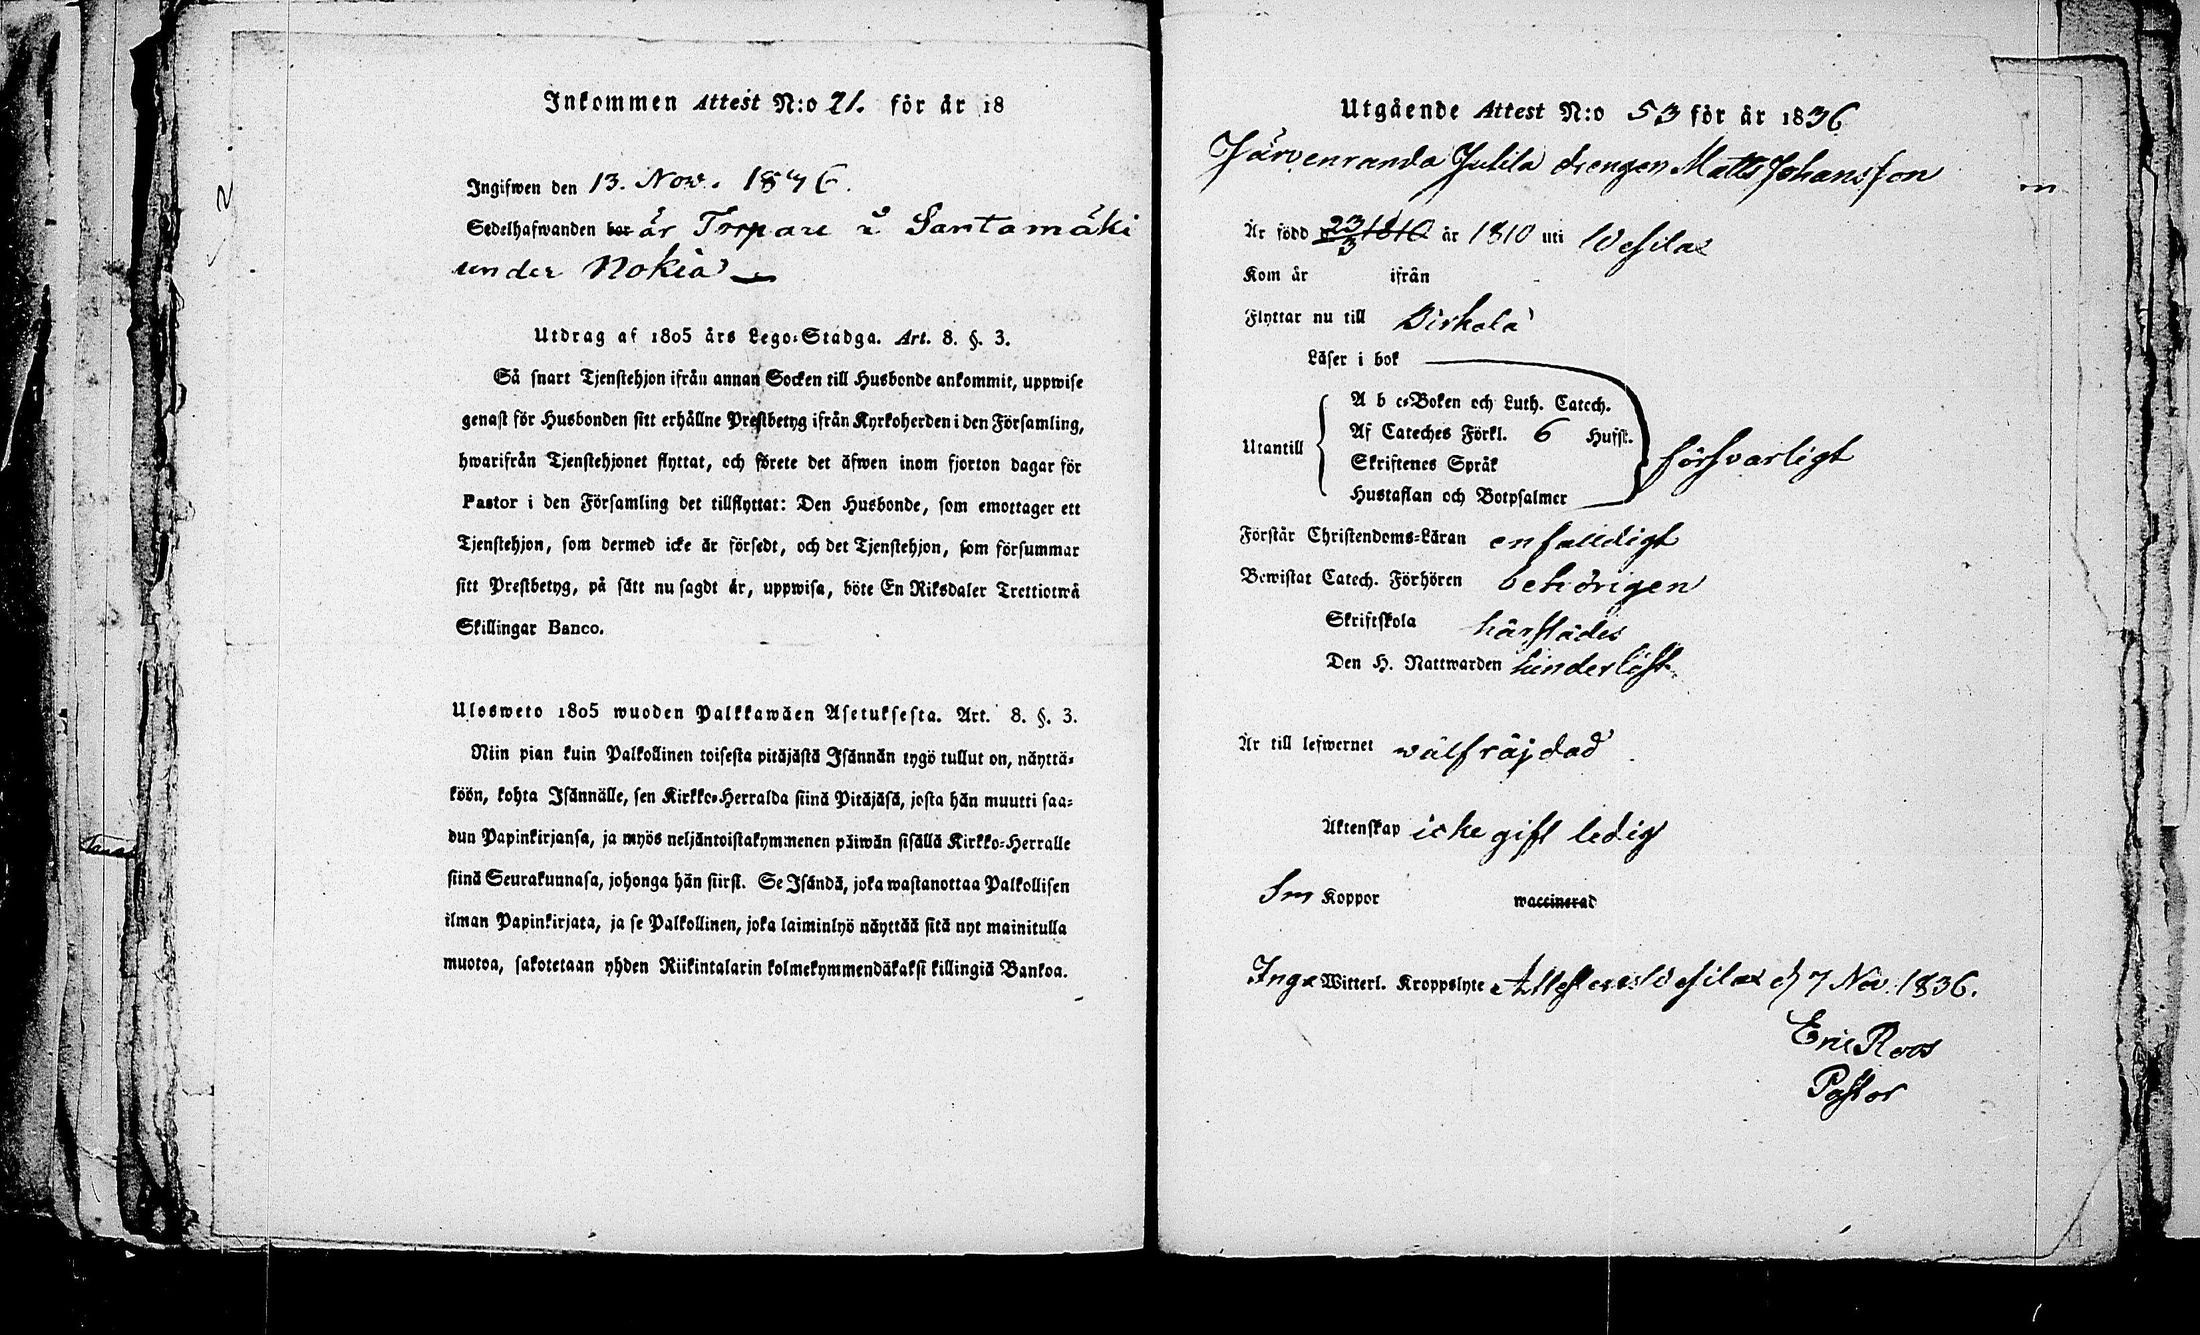 Inkommen Attest N:o 21. för år 18
Ingifwen den 13. Nov. 1846.
Sedelhafwanden bor är Torpare i Santamäki
under Nokia
Utdrag af 1805 års Lego-Stadga. Art. 8. §. 3.
Så snart Tjenstehjon ifrån annan Socken till Husbonde ankommit, uppwise
genast för Husbonden sitt erhållne Prestbetyg ifrån Kyrkoherden i den Församling,
hwarifrån Tjenstehjonet flyttat, och förete det äfwen inom fjorton dagar för
Pastor i den Församling det tillflyttat: Den Husbonde, som emottager ett
Tjenstehjon, som dermed icke är försedt, och det Tjenstehjon, som försummar
sitt Prestbetyg, på sätt nu sagdt är, uppwisa, böte En Riksdaler Trettiotwå
Skillingar Banco.
Ulosweto 1805 wuoden Palkkawäen Asetuksesta. Art. 8. §. 3.
Niin pian kuin Palkollinen toisesta pitäjästä Isännän tygö tullut on, näyttä-
köön, kohta Isännälle, sen Kirkko-Herralda siinä Pitäjäsä, josta hän muutti saa-
dun Papinkirjansa, ja myös neljäntoistakymmenen päiwän sisällä Kirkko-Herralle
siinä Seurakunnasa, johonga hän siirst. Se Isändä, joka wastanottaa Palkollisen
ilman Papinkirjata, ja se Palkollinen, joka laiminlyö näyttää sitä nyt mainitulla
muotoa, sakotetaan yhden Riikintalarin kolmekymmendäkaksi killingiä Bankoa.
Utgående Attest N:o 53 för år 1836
Järvenranda Jutila drengen Matts Johansson
Är född 23/3 1810 år 1810 uti Wesilax
Kom år ifrån
Flyttar nu till Birkala
Läser i bok
A b c-Boken och Luth. Catech.
Af Cateches Förkl. 6 Hufst.
Utantill
Skriftenes Språk
försvarligt
Hustaflan och Botpsalmer
Förstår Christendoms-Läran enfalldigt
Bewistat Catech. Förhören behörigen
Skriftskola härstädes
Den H. Nattwarden hinderlöst.
Är till lefwernet wälfräjdad
Äktenskap icke gift ledig
Koppor waccinerad
Inga Witterl. Kroppslyte Attesteras Wesilax d 7 Nov. 1836.
Eric Roos
Pastor